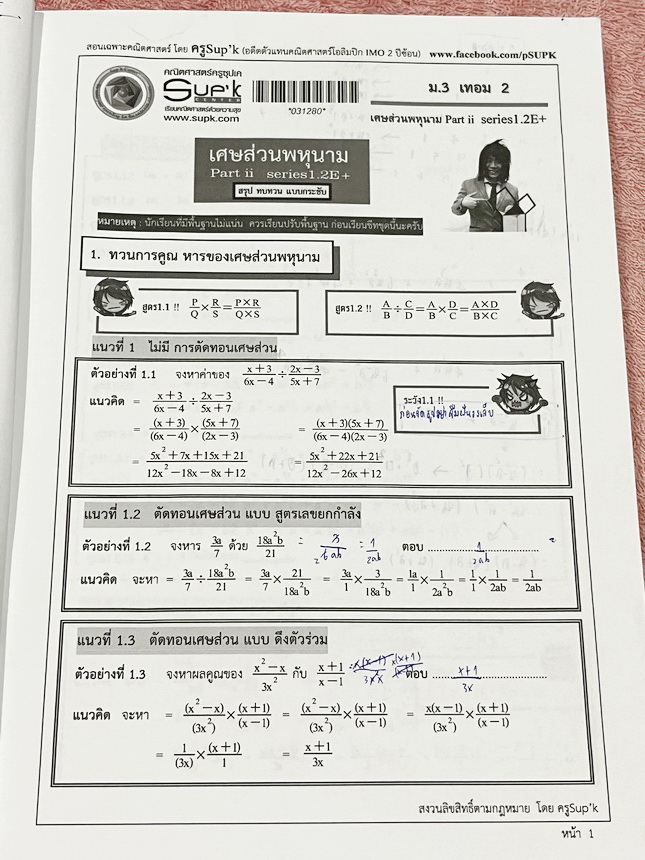 สอนเฉพาะคณิตศาสตร์ โดย ครูSup'k (อดีตตัวแทนคณิตศาสตร์โอลิมปิก IMO 2 ปีซ้อน) www.facebook.com/pSUPK
คณิตศาสตร์ครูซุปเค
Sup'k
CENTER
เรียนคณิตศาสตร์ด้วยความสุข
www.supk.com
*031280*
ม.3 เทอม 2
เศษส่วนพหุนาม Part ii series1.2E+
เศษส่วนพหุนาม
Part ii series1.2E+
สรุป ทบทวน แบบกระชับ
หมายเหตุ : นักเรียนที่มีพื้นฐานไม่แน่น ควรเรียนปรับพื้นฐาน ก่อนเรียนชีทชุดนี้นะครับ
1. ทวนการคูณ หารของเศษส่วนพหุนาม
สูตร1.1 !! P/Q × R/S = P×R/Q×S
สูตร1.2 !! A/B ÷ C/D = A/B × D/C = A×D/B×C
แนวที่ 1 ไม่มี การตัดทอนเศษส่วน
ตัวอย่างที่ 1.1 จงหาค่าของ x+3/6x−4 ÷ 2x−3/5x+7
แนวคิด = x+3/6x−4 ÷ 2x−3/5x+7
ระวัง1.1 !!
= (x+3)/(6x−4) × (5x+7)/(2x−3) = (x+3)(5x+7)/(6x−4)(2x−3)
= 5x²+7x+15x+21/12x²−18x−8x+12 = 5x²+22x+21/12x²−26x+12
แนวที่ 1.2 ตัดทอนเศษส่วน แบบ สูตรเลขยกกำลัง
ตัวอย่างที่ 1.2 จงหาร 3a/7 ด้วย 18a²b/21 = 3/6ab = 1/2ab ตอบ 1/2ab
แนวคิด จะหา = 3a/7 ÷ 18a²b/21 = 3a/7 × 21/18a²b = 3a/1 × 3/18a²b = 1a/1 × 1/2a²b = 1/1 × 1/2ab = 1/2ab
แนวที่ 1.3 ตัดทอนเศษส่วน แบบ ดึงตัวร่วม
ตัวอย่างที่ 1.3 จงหาผลคูณของ x²−x/3x² กับ x+1/x−1 ตอบ x+1/3x
แนวคิด จะหา = (x²−x)/(3x²) × (x+1)/(x−1) = (x²−x)/(3x²) × (x+1)/(x−1) = x(x−1)/(3x²) × (x+1)/(x−1)
= 1/(3x) × (x+1)/1 = x+1/3x
สงวนลิขสิทธิ์ตามกฎหมาย โดย ครูSup'k
หน้า 1